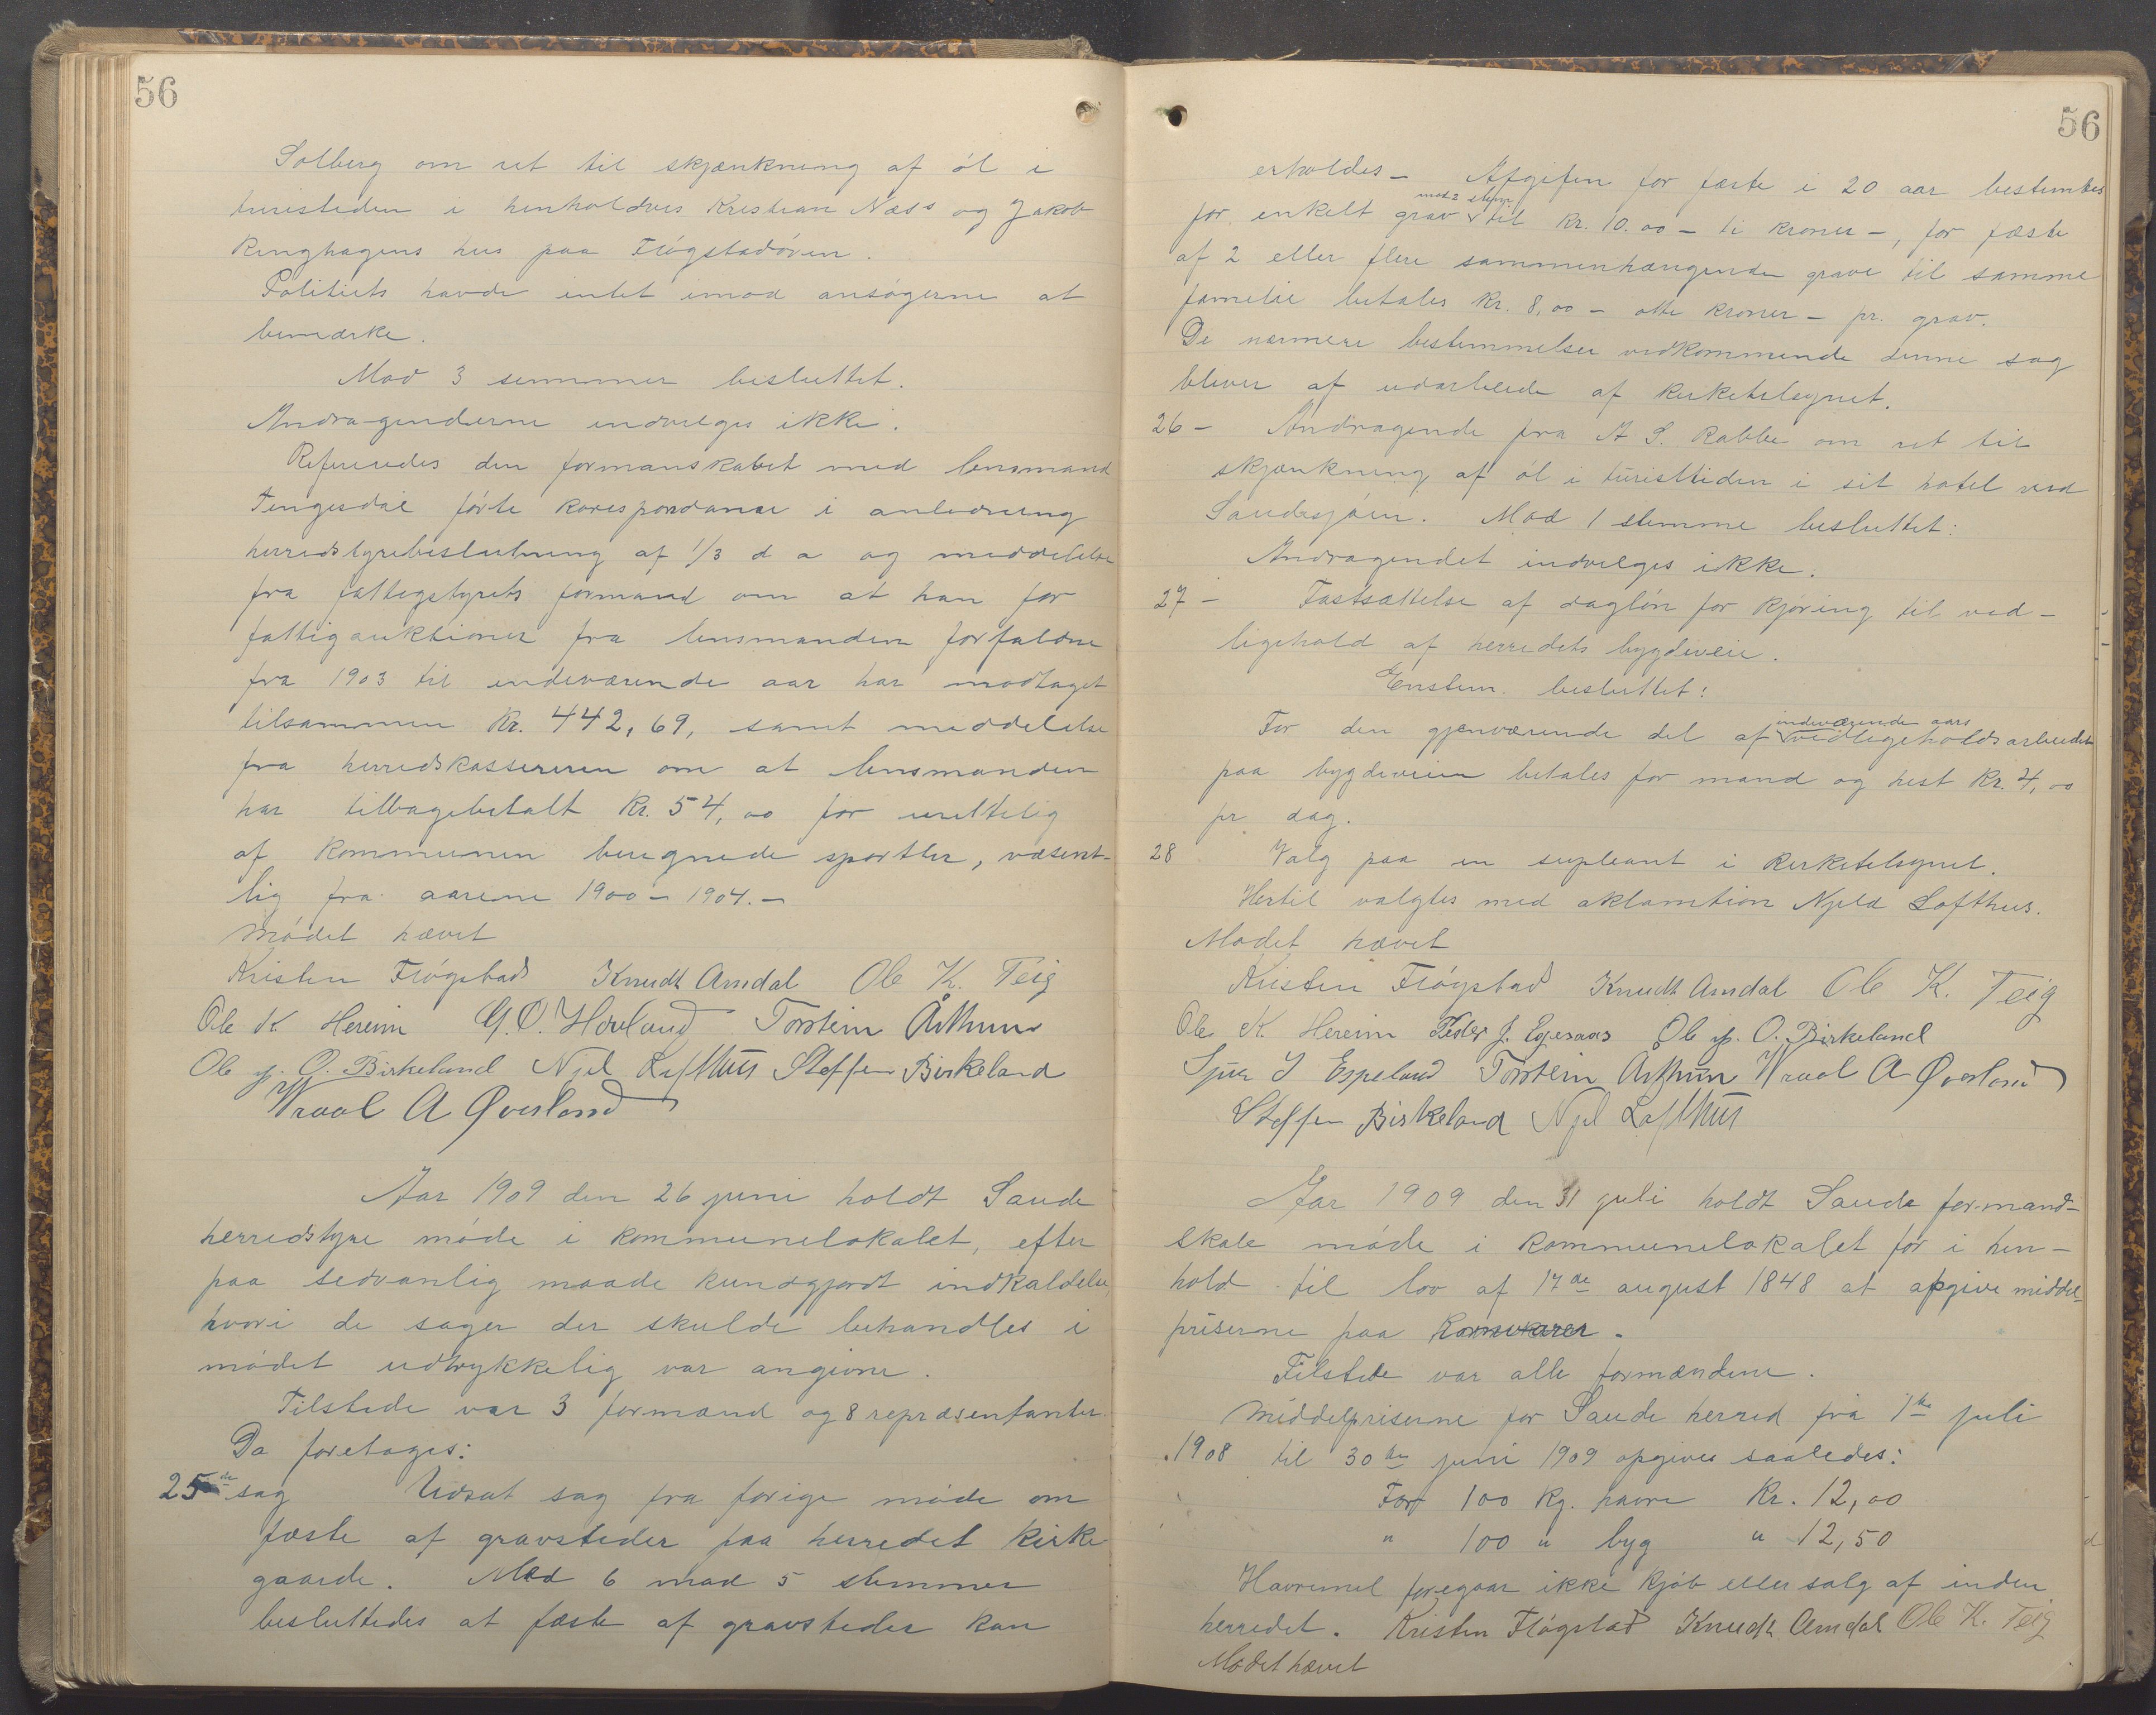 56
Solberg om ret til skjænkning af øl i
turisttiden i henholdsvis Kristian Næss og Jakob
Ringhagens hus paa Fløgstadøren.
Politiets havde intet imod ansøgerne at
bemærke.
Mod 3 stemmer besluttet.
Andragenderne indvelges ikke.
Refereredes den formanskabet med lensmand
Tengesdal førte korespondanse i anledning
herredstyrebeslutning af 1/3 d a og meddelelse
fra fattegstyrets formand om at han for
fattigauktioner fra lensmanden forfaldne
fra 1903 til indeværende aar har modtaget
tilsammen Kr. 442,69, samt meddelelse
fra herredskassereren om at lensmanden
har tilbagebetalt Kr. 54,00 for urettelig
af kommunen beregnede sportler, væsent-
lig fra aarene 1900 - 1904. -
Mødet hævet
Kristen Fløgstad Knudt Amdal Ole K. Teig
Ole K Hereim G. O. Hovland Torstein Årthun
Ole O. Birkeland Njel Lofthus Steffen Birkeland
Wraal A Øverland
Aar 1909 den 26 juni holdt Saude
herredstyre møde i kommunelokalet, efter
paa sedvanlig maade kundgjordt indkaldelse,
hvori de sager der skulde behandles i
mødet udtrykkelig var angivne.
Tilstede var 3 formænd og 8 repræsentanter.
Da foretages:
25de sag Udsat sag fra forige møde om
fæste af gravsteder paa herredet kirke
gaarde. Med 6 mod 5 stemmer
besluttedes at fæste af gravsteder kan
56
erholdes - Afgiften for fæste i 20 aar bestemtes
med 2 stem.
for enkelt grav til Kr. 10.00 - ti kroner -, for fæste
af 2 eller flere sammenhængende grave til samme
familie betales Kr. 8,00 - otte kroner - pr. grav.
De nærmere bestemmelser vedkommende denne sag
bliver af udarbeide af kirketelsynet.
26 - Andragende fra A S. Rabbe om ret til
skjænkning af øl i turisttiden i sit hotel ved
Saudesjøen. Mod 1 stemme besluttet:
Andragendet indvelges ikke.
27 - Fastsættelse af dagløn for kjøring til ved-
ligehold af herredets bygdeveie.
Enstem. besluttet:
indeværende aars
For den gjenværende del af vedligeholdsarbeidet
paa bygdeveien betales for mand og hest Kr. 4,00
pr dag.
28 Valg paa en supleant i kirketelsynet.
Hertil valgtes med aklamtion Njeld Lofthus.
Mødet hævet
Kristen Fløgstad Knudt Amdal Ole K. Teig
Ole K. Hereim Peder J. Egesaas Ole O. Birkeland
Sjur J Espeland Torstein Årthun Wraal A Øverland
Steffen Birkeland Njel Lofthus
Aar 1909 den 31 juli holdt Saude formand-
skab møde i kommunelokalet for i hen-
hold til lov af 17de august 1848 at opgive middel-
priserne paa kornvarer.
Tilstede var alle formændene.
Middelpriserne for Saude herred fra 1te juli
1908 til 30te juni 1909 opgives saaledes:
For 100 Kg. havre Kr. 12,00
" 100 " byg " 12,50
Havremel foregaar ikke kjøb eller salg af inden
herredet. Kristen Fløgstad Knudt Amdal Ole K. Teig
Mødet hævet